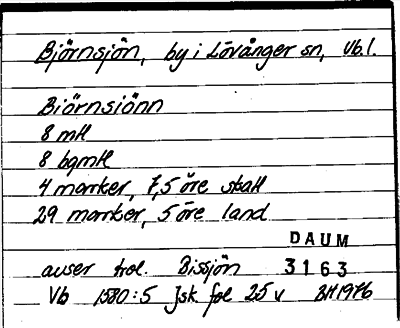 Björnsjön, by i Lövånger sn, Vb.l.
Biörnsiönn
8 mtl
8 bgmtl
4 marker, 7,5 öre skatt
29 marker, 5 öre land
DAUM
avser trol. Bissjön 3163
Vb 1580:5 Jsk fol 25 v BH 1976